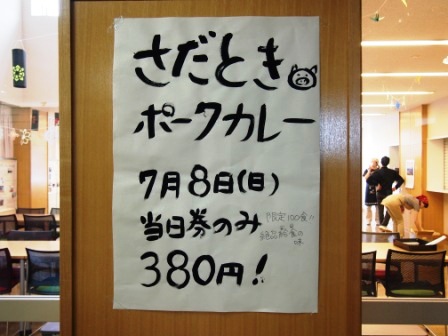 さだとき
ポークカレー
7月8日(日)
当日券のみ
限定100食!!
絶品
味
380円!